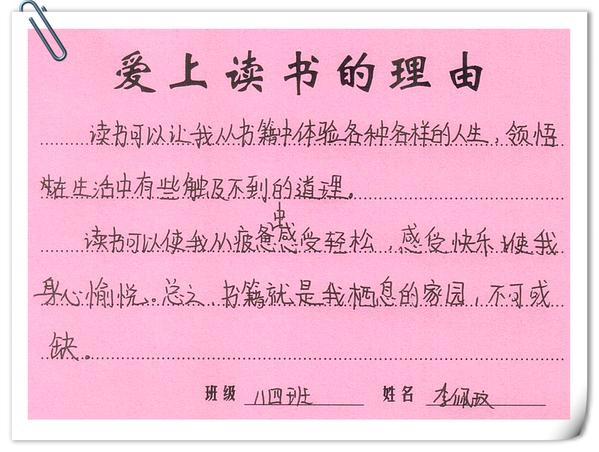 爱上读书的理由
读书可以让我从书籍中体验各种各样的人生，领悟
在生活中有些触及不到的道理。
读书可以使我从疲惫中感受轻松，感受快乐，使我
身心愉悦。总之，书籍就是我栖息的家园，不可或
缺。
班级 八四班 姓名 李佩